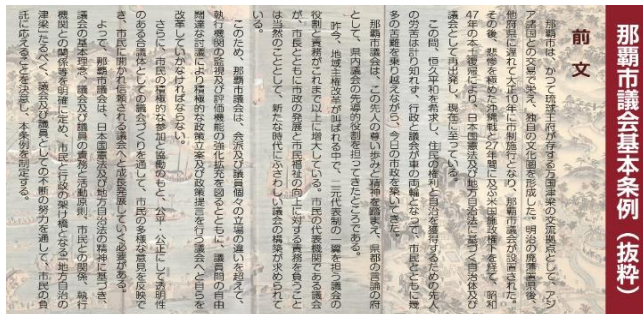 那覇市議会基本条例（抜粋）
前文
那覇市は、かつて琉球王府が存する万国津梁の交流拠点として、アジ
ア諸国との交易で栄え、独自の文化圏を形成した。明治の廃藩置県後、
他府県に遅れて大正10年に市制施行となり、那覇市議会が設置された。
その後、悲惨を極めた沖縄戦と27年間に及ぶ米国施政権下を経て、昭和
47年の本土復帰により、日本国憲法及び地方自治法に基づく自治体及び
議会として再出発し、現在に至っている。
この間、恒久平和を希求し、住民の権利と自治を獲得するための先人
の労苦は計り知れず、行政と議会が車の両輪となって、市民とともに幾
多の苦難を乗り越えながら、今日の市政を築いてきた。
那覇市議会は、この先人の尊い歩みと精神を踏まえ、県都の言論の府
として、県内議会の先導的役割を担ってきたところである。
昨今、地域主権改革が叫ばれる中で、二元代表制の一翼を担う議会の
役割と責務がこれまで以上に増大している。市民の代表機関である議会
が、市長とともに市政の発展と市民福祉の向上に対する責務を負うこと
は当然のこととして、新たな時代にふさわしい議会の構築が求められて
いる。
このため、那覇市議会は、会派及び議員個々の立場の違いを超えて、
執行機関の監視及び評価機能の強化拡充を図るとともに、議員間の自由
闊達な討議により積極的な政策立案及び政策提言を行う議会へと自らを
改革していかなければならない。
さらに、市民の積極的な参加と協働のもと、公平・公正にして透明性
のある合議体としての議会づくりを通して、市民の多様な意見を反映で
き、市民に開かれ信頼される議会へと成長発展していく必要がある。
よって、那覇市議会は、日本国憲法及び地方自治法の精神に基づき、
議会の基本理念、議会及び議員の責務と活動原則、市民との関係、執行
機関との関係等を明確に定め、市民と行政の架け橋となる「地方自治の
津梁」たるべく、議会及び議員としての不断の努力を通して、市民の負
託に応えることを決意し、本条例を制定する。